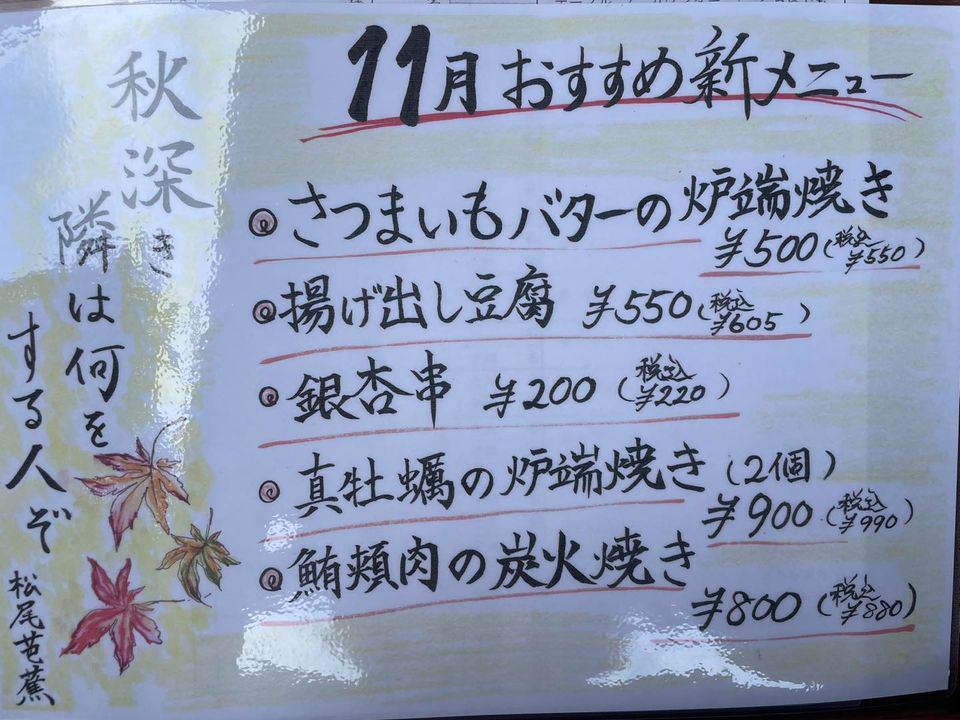 11月おすすめ新メニュー
さつまいもバターの炉端焼き
¥500(税込¥550)
揚げ出し豆腐 ¥550(税込¥605)
銀杏串 ¥200(税込¥220)
真牡蠣の炉端焼き(2個)
¥900(税込¥990)
鮪頬肉の炭火焼き
¥800(税込¥880)
秋深き
隣は何を
する人ぞ
松尾芭蕉